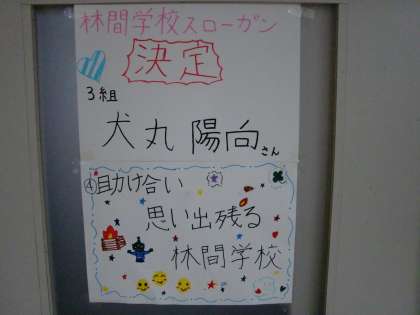 林間学校スローガン
決定
3組
犬丸 陽向さん
④助け合い
思い出残る
林間学校